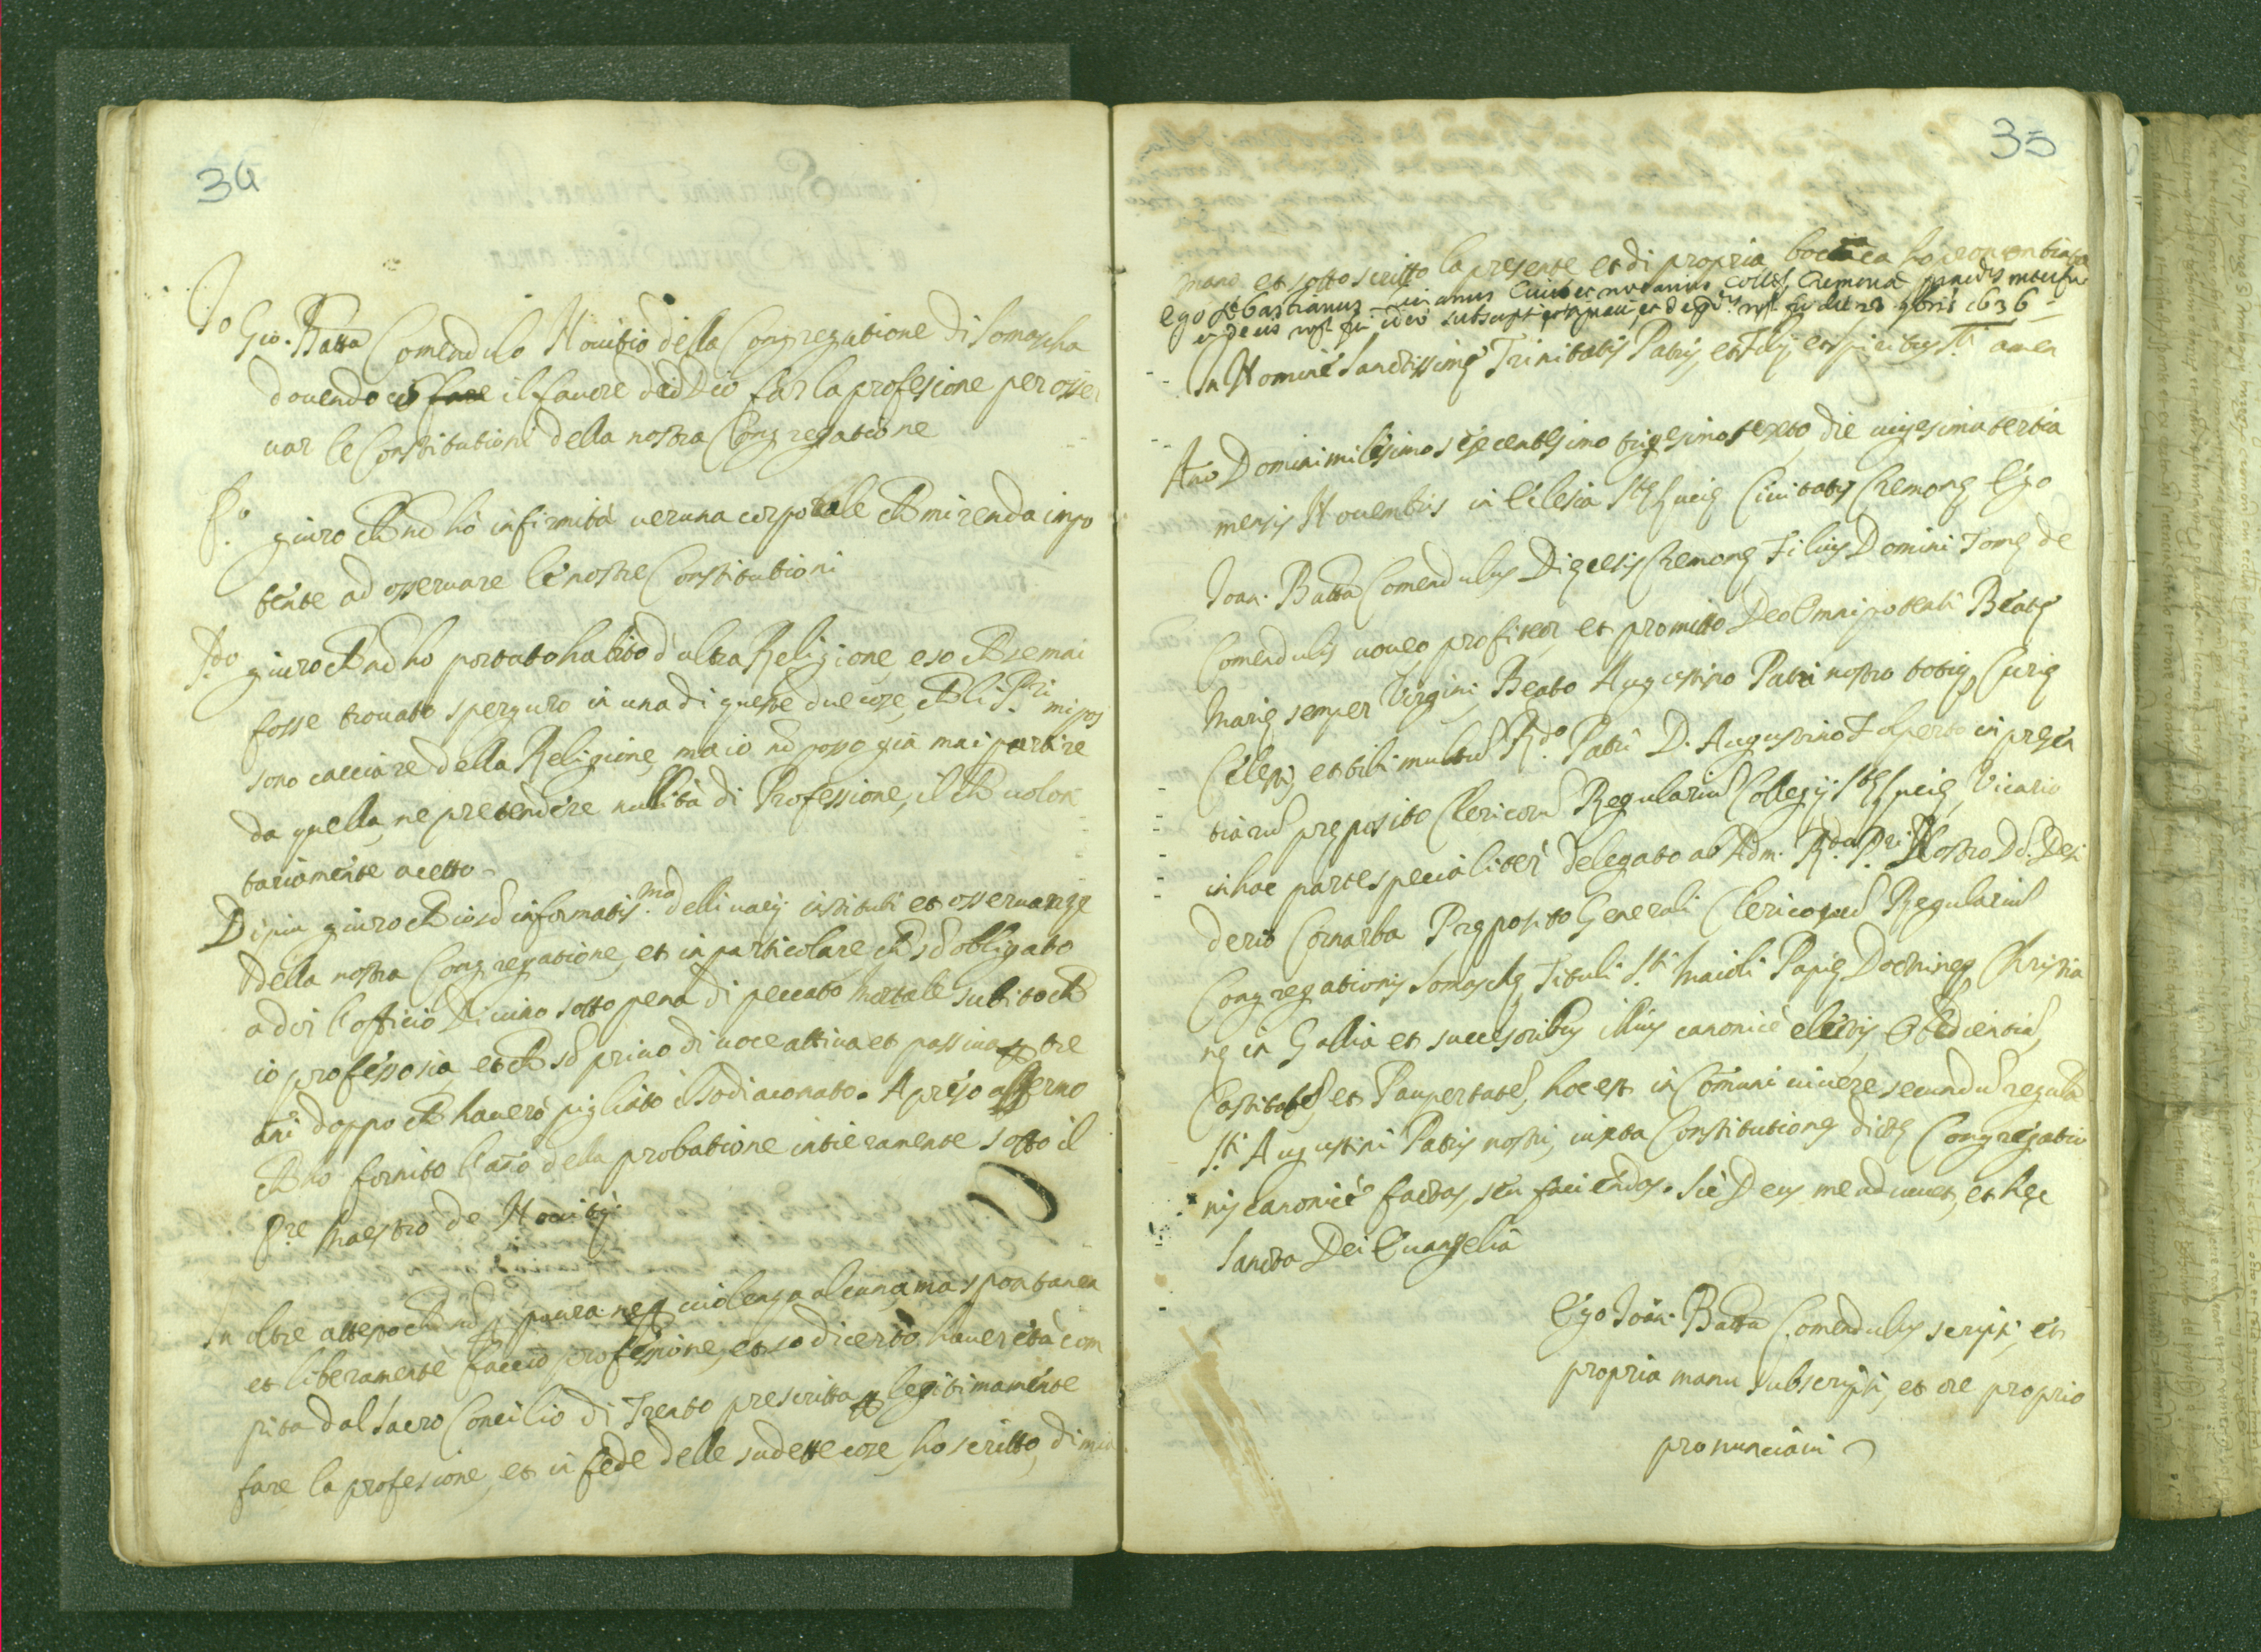 34
Io Gio. Batta Comendulo Nouitio della Congregatione di Somascha
douendo co il fauore de Dio far la profesione per osser
uar le Constitutioni della nostra Congregatione
P.o giuro che nõ hò infirmità ueruna corporale che mi renda impo
tente ad osseruare le nostre Constitutioni
S.do giuro che nõ ho portato habito d'altra Religione, e so che se mai
fosse trouato sperguro in una di queste due cose, che li P.ri mi pos
sono cacciare della Religione, ma io nõ posso già mai partire
da quella, ne pretendere nullità di Professione, il che uolon
tariamente acetto
Di piu giuro che io sõ informatis.mo delli uarij instituti et osseruanze
della nostra Congregatione, et in particolare che sõ obligato
a dir l'officio Diuino sotto pena di peccato mortale subito che
io professo sia, et che sõ priuo di uoce attiua et passiua ꝑ tre
ani doppo che hauerò pigliato il sodiaconato. Apreso affermo
che ho fornito l'año della probatione intieramente sotto il
P.re Maestro de Nouitij
In oltre attesto che nõ ꝑ paura ne ꝑ uiolenza alcuna, ma spontanea
et liberamente faccio professione, et so di certo hauer età com
pita dal Sacro Concilio di Trento prescritta ꝑ legitimamente
fare la profesione, et in fede delle sudette cose, ho scritto, di mia
35
mano et sotto scritto la presente et di propria bocca ho pronontiata
ego Sebastianus Ciuis et notarius Colleg. Cremonæ interfui
1636
In Nomine Sanctissimę Trinitatis Patris, et Filij, et spiritus S.ti amen
Año Domini milesimo sexcentesimo trigesimo sexto, die uigesima tertia
mensis Nouembris in Eclesia S.tę Lucię Ciuitatis Cremonę Ego
Ioan. Batta Comendulus Dięcesis Cremonę Filius Domini Tomę de
Comendulis uoueo, profiteor, et promitto Deo Omnipotenti Beatę
Marię semper Virgini, Beato Augustino Patri nostro totię Curię
Celesti, et tibi multũ R.do Patri D. Augustino Fulperto in pręsen
tiarũ pręposito Clericorũ Regulariũ Collegij S.tę Lucię, Vicario
in hac parte specialiter delegato ab Adm. R.do P.ri Nostro Dõ. Desi
derio Cornarba Pręposito Generali Clericorũ Regulariũ
Congregationis Somaschę Tituli S.ti Maioli Papię Doctrinęq Christia
nę in Gallia et succesoribus illius canonicè electis, Obedientiã,
Castitatẽ et Paupertatẽ, hoc est in Comuni uiuere secundũ regulã
S.ti Augustini Patris nostri, iuxta Constitutiones dictę Congregatio
nis canonicè factas, seu faciendas. Sic Deus me adiuuet, et hęc
Sancta Dei Euangelia
Ego Ioan. Batta Comendulus scripsi, et
propria manu subscripsi, et ore proprio
pronunciaui